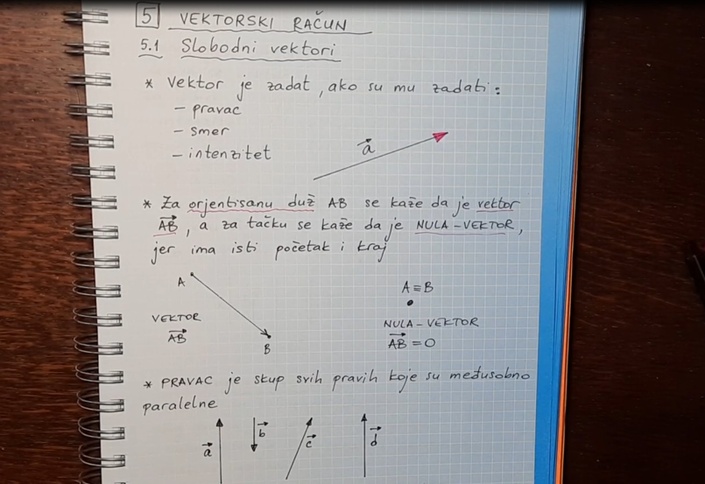 5 VEKTORSKI RAČUN
5.1 Slobodni vektori
* Vektor je zadat, ako su mu zadati:
- pravac
- smer
- intenzitet
a⃗
* Za orjentisanu duž AB se kaže da je vektor
A⃗B⃗, a za tačku se kaže da je NULA-VEKTOR,
jer ima isti početak i kraj
A
B
VEKTOR
A⃗B⃗
A≡B
NULA-VEKTOR
A⃗B⃗ = O
* PRAVAC je skup svih pravih koje su međusobno
paralelne
a⃗ b⃗ c⃗ d⃗